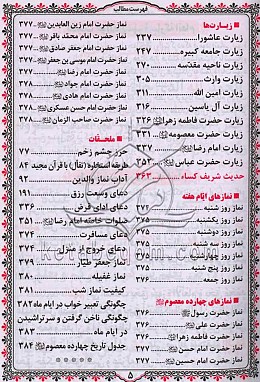 فهرست مطالب
زیارت‌ها
زیارت عاشورا ... ۲۳۷
زیارت جامعه کبیره ... ۲۴۷
زیارت ناحیه مقدسه ... ۲۷۰
زیارت وارث ... ۳۰۵
زیارت امین الله ... ۳۱۱
زیارت آل یاسین ... ۳۱۶
زیارت حضرت فاطمه زهرا ... ۳۲۶
زیارت حضرت معصومه ... ۳۳۱
زیارت امام رضا ... ۳۳۷
زیارت حضرت عباس ... ۳۵۳
حدیث شریف کساء ... ۳۶۳
نمازهای ایام هفته
نماز روز شنبه ... ۳۷۵
نماز روز یکشنبه ... ۳۷۵
نماز روز دوشنبه ... ۳۷۵
نماز روز سه شنبه ... ۳۷۵
نماز روز چهارشنبه
نماز روز پنج شنبه ... ۳۷۵
نماز روز جمعه ... ۳۷۶
نمازهای چهارده معصوم
نماز حضرت رسول ... ۳۷۶
نماز حضرت علی ... ۳۷۶
نماز حضرت فاطمه زهرا ... ۳۷۶
نماز حضرت امام حسن ... ۳۷۷
نماز حضرت امام حسین ... ۳۷۷
نماز حضرت امام زین العابدین ... ۳۷۷
نماز حضرت امام محمد باقر ... ۳۷۷
نماز حضرت امام جعفر صادق ... ۳۷۷
نماز حضرت امام موسی بن جعفر ... ۳۷۷
نماز حضرت امام رضا ... ۳۷۷
نماز حضرت امام جواد ... ۳۷۸
نماز حضرت امام هادی ... ۳۷۸
نماز حضرت امام حسن عسکری ... ۳۷۸
نماز حضرت صاحب الزمان ... ۳۷۸
ملحقات
حرز چشم زخم ... ۷۷
طریقه استخاره (تفأل) با قرآن مجید ... ۸۴
آداب نماز والدین ... ۹۲
دعای وسعت رزق ... ۱۹۱
دعای ادای قرض ... ۳۳۶
صلوات خاصه امام رضا ... ۳۵۱
دعای مسافرت ... ۳۷۴
دعای خروج از منزل ... ۳۷۴
نماز جعفر طیار ... ۳۷۹
نماز غفیله ... ۳۸۰
کیفیت نماز شب ... ۳۸۱
چگونگی تعبیر خواب در ایام ماه ... ۳۸۲
چگونگی ناخن گرفتن و سر تراشیدن
در ایام ماه ... ۳۸۳
جدول تاریخ چهارده معصوم ... ۳۸۴
۵